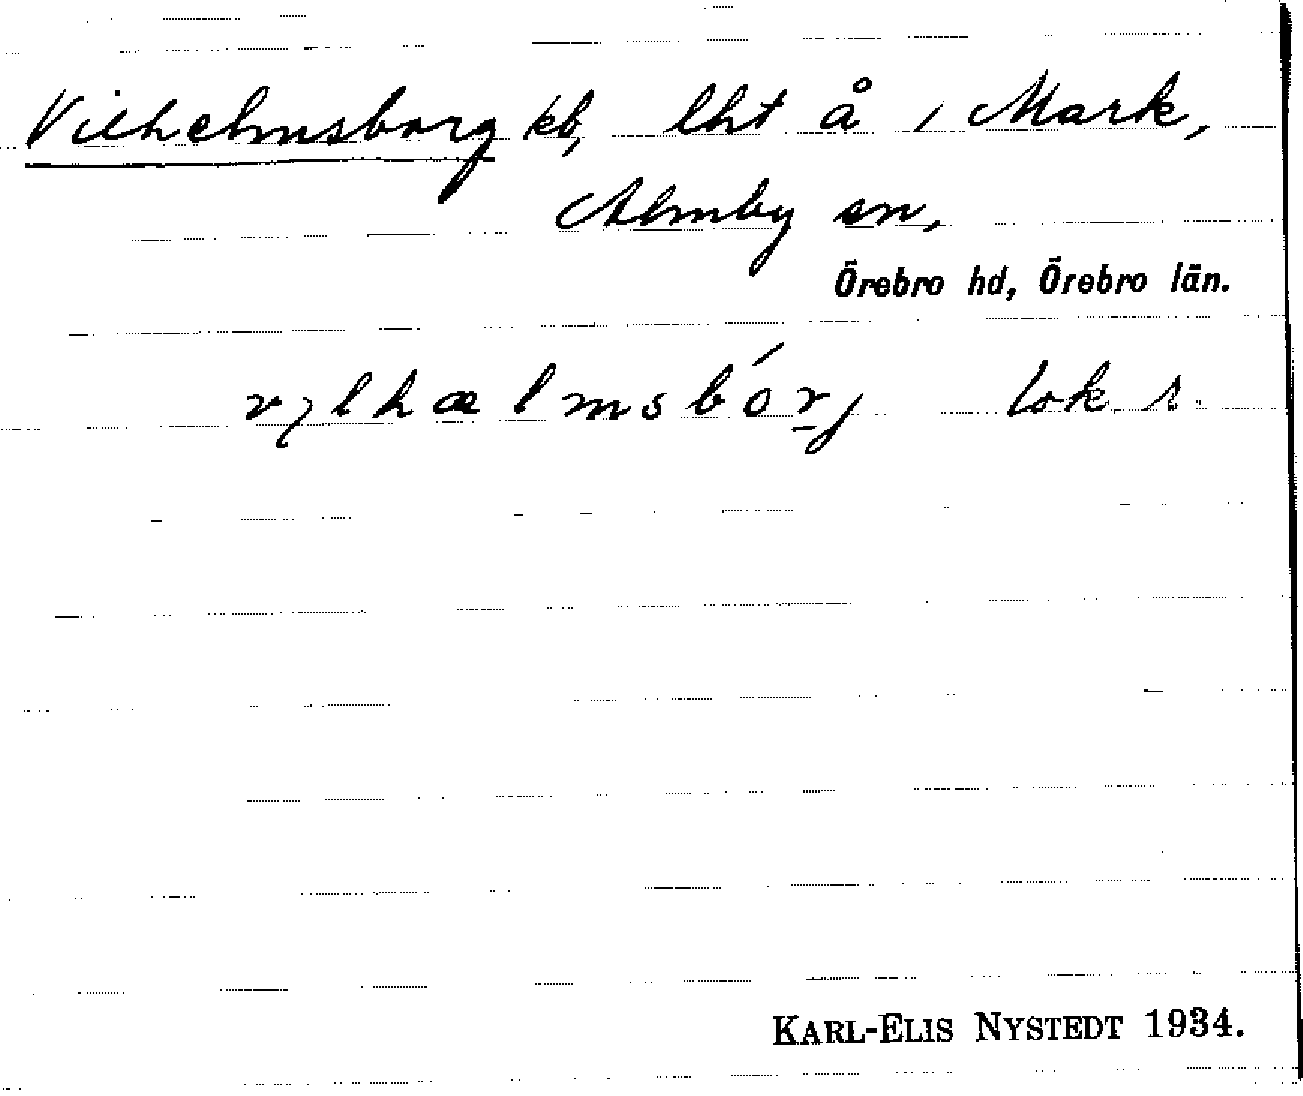 Vilhelmsborg kb, lht å 1 Mark,
Almby sn,
Örebro hd, Örebro län.
lok 1.
KARL-ELIS NYSTEDT 1934.